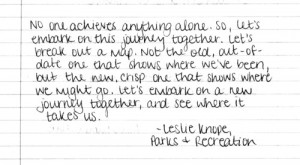 NO one achieves anything alone. So, let's
embark on this journey together. Let's
break out a map. Not the old, out-of-
date one that shows where we've been,
but the new, crisp one that shows where
we might go. Let's embark on a new
journey together, and see where it
takes us.
-Leslie Knope,
Parks + Recreation